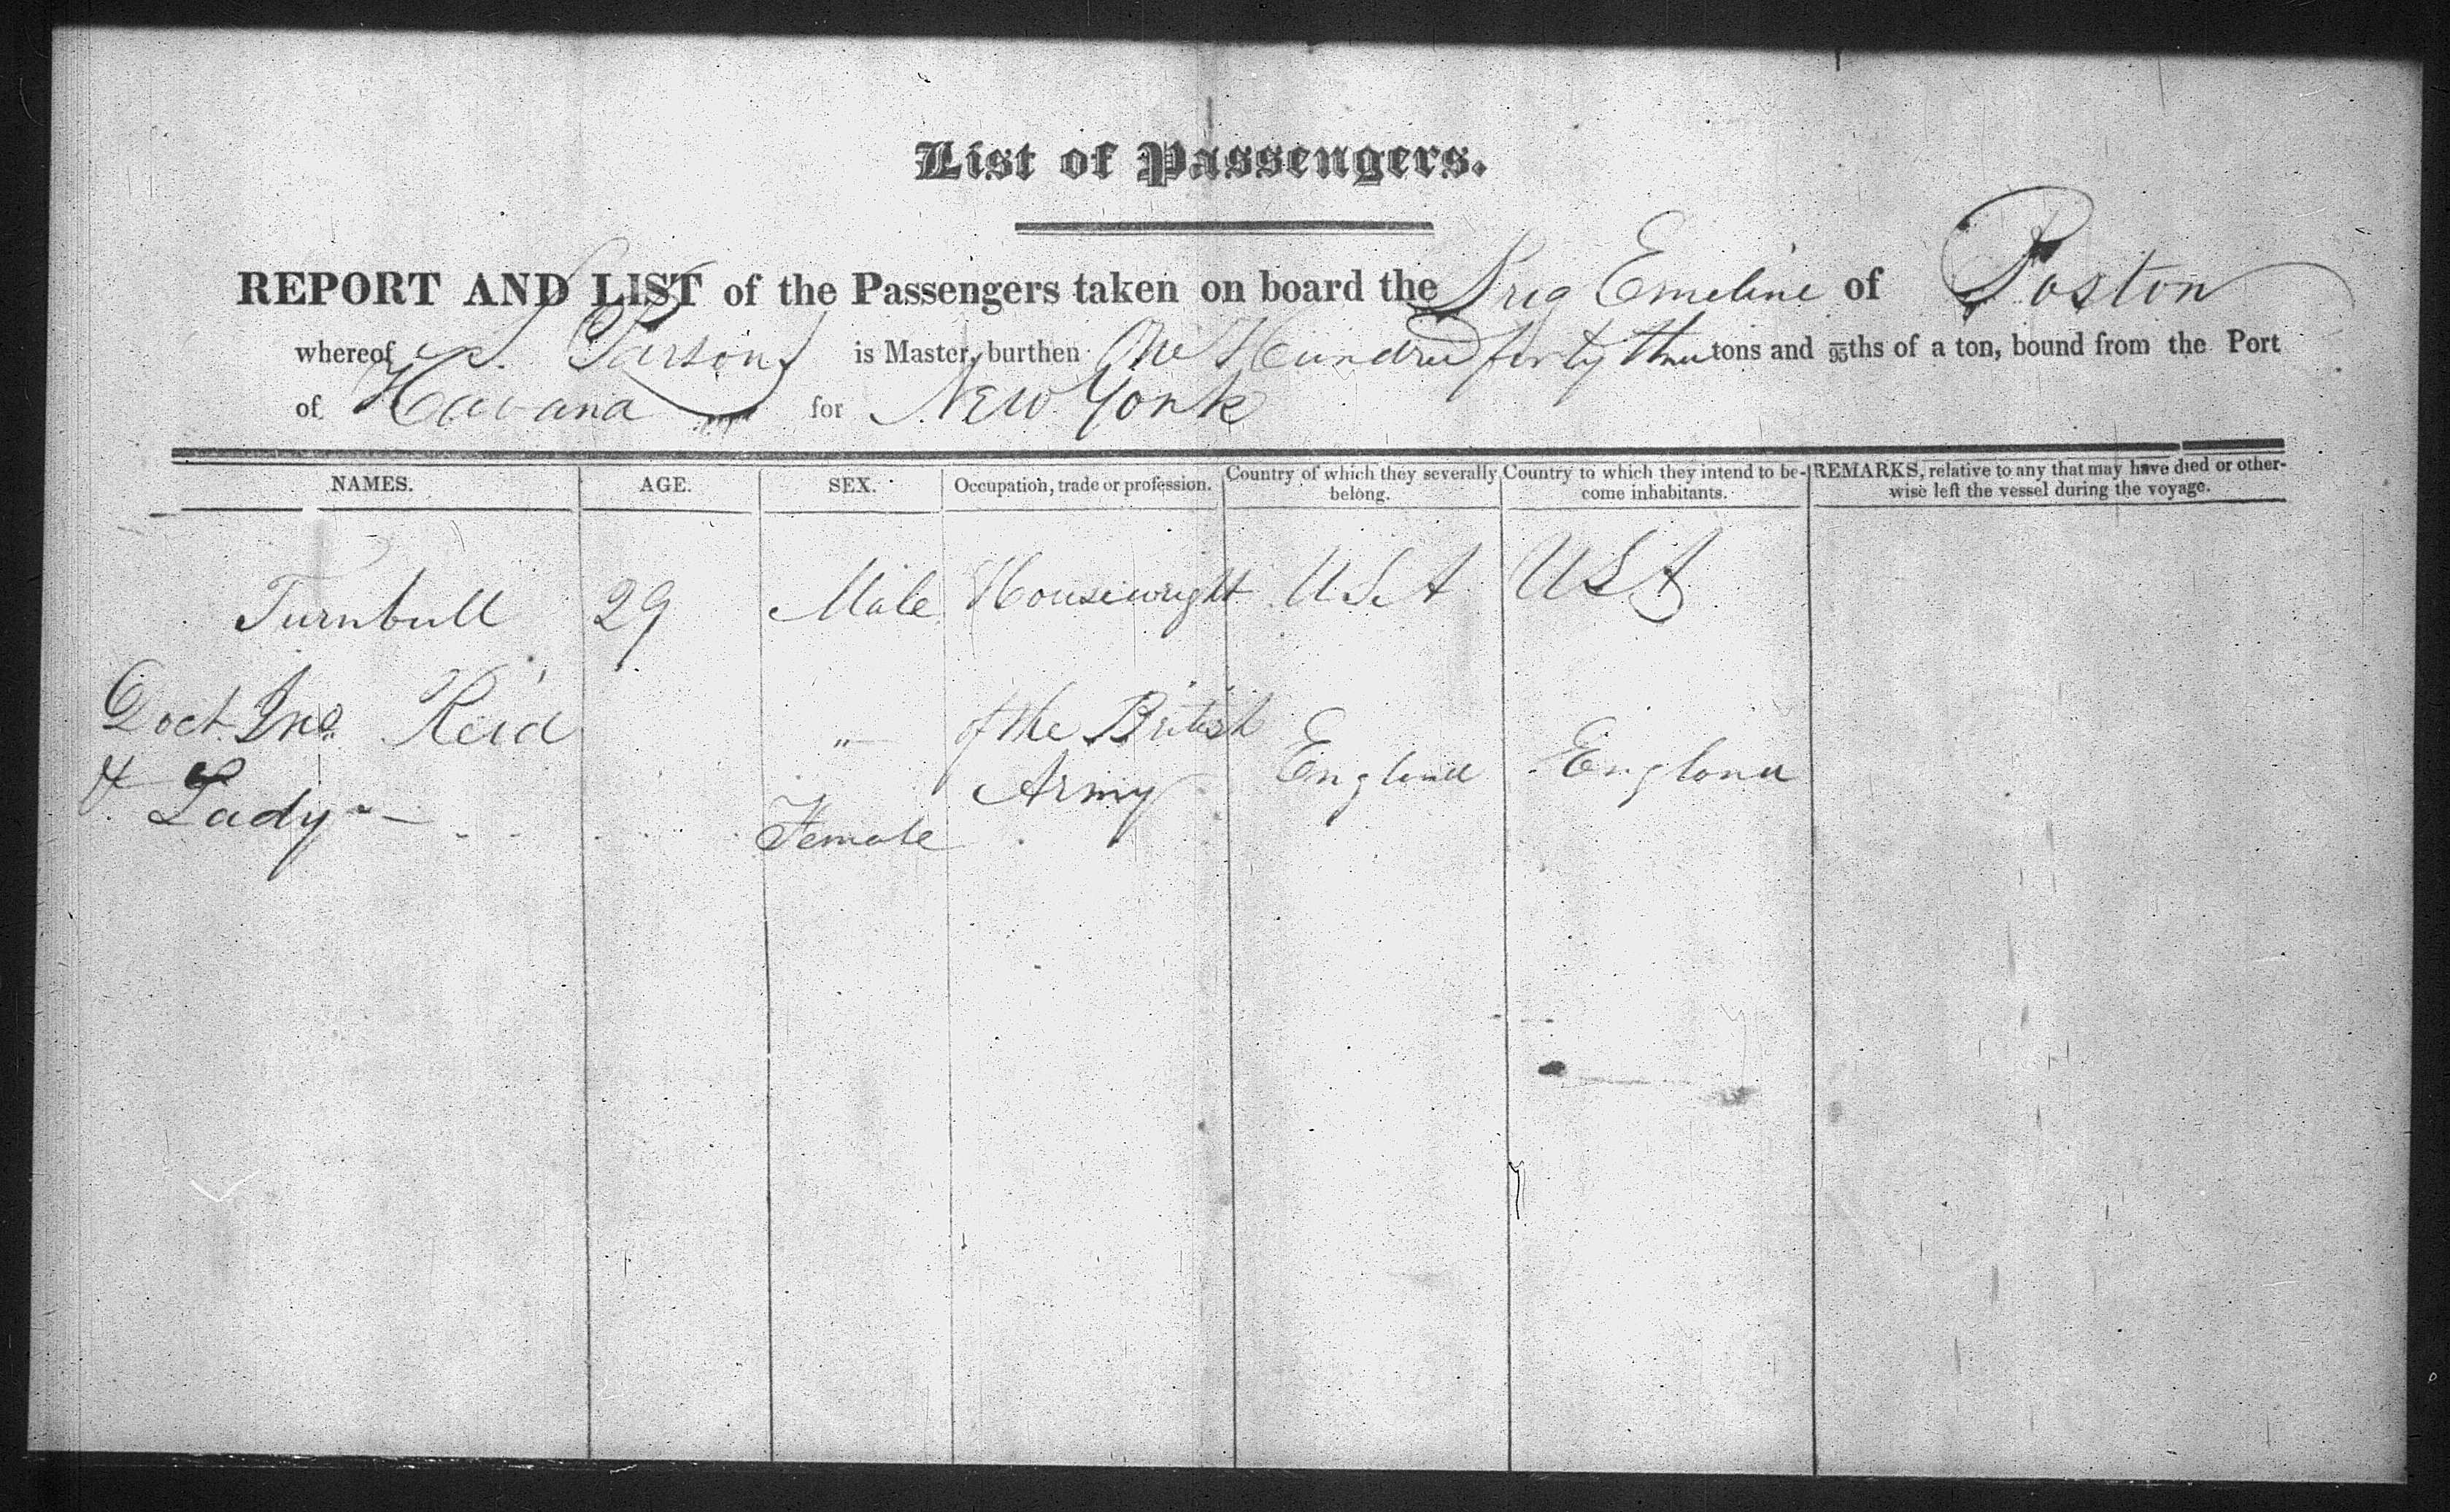 List of Passengers.
REPORT AND LIST of the Passengers taken on board the Brig Emeline of Boston
whereof S. Parsons is Master, burthen One Hundred forty three tons and 95ths of a ton, bound from the Port
of Havana for New York
NAMES. AGE. SEX. Occupation, trade or profession. Country of which they severally belong. Country to which they intend to become inhabitants. REMARKS, relative to any that may have died or otherwise left the vessel during the voyage.
Turnbull 29 Male Housewright U.S.A USA
Doct. Jno. Reid " of the British Army England England
& Lady Female